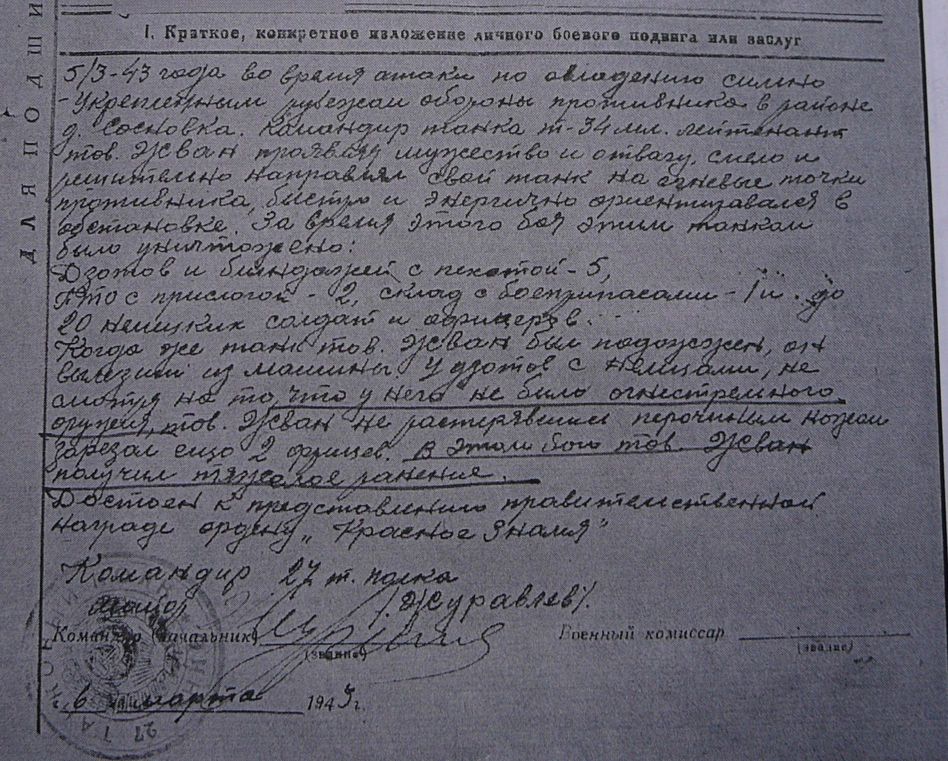 ДЛЯ ПОДШИ
I. Краткое, конкретное изложение личного боевого подвига или заслуг
5/3-43 года во время атаки по овладению сильно
-укрепленным рубежом обороны противника в районе
д. Сосновка. Командир танка т-34 мл. лейтенант
тов. Жван проявляя мужество и отвагу, смело и
решительно направлял свой танк на огневые точки
противника, быстро и энергично ориентировался в
обстановке. За время этого боя этим танком
было уничтожено:
Дзотов и блиндажей с пехотой - 5,
ПТО с прислогой - 2, склад с боеприпасами - 1 и до
20 немецких солдат и офицеров.
Когда же танк тов. Жван был подожжен, он
вылезши из машины у дзотов с немцами, не
смотря на то, что у него не было огнестрельного
оружия, тов. Жван не растерявшись перочиным ножом
зарезал еще 2 фрицев. В этом бою тов. Жван
получил тяжелое ранение.
Достоен к представлению правительственной
награде ордену „Красное Знамя"
Командир 27 т. полка
майор /Журавлев/.
Командир (начальник)
Военный комиссар
(звание)
(звание)
6 марта 1943г.
27 ТАНКОВЫЙ